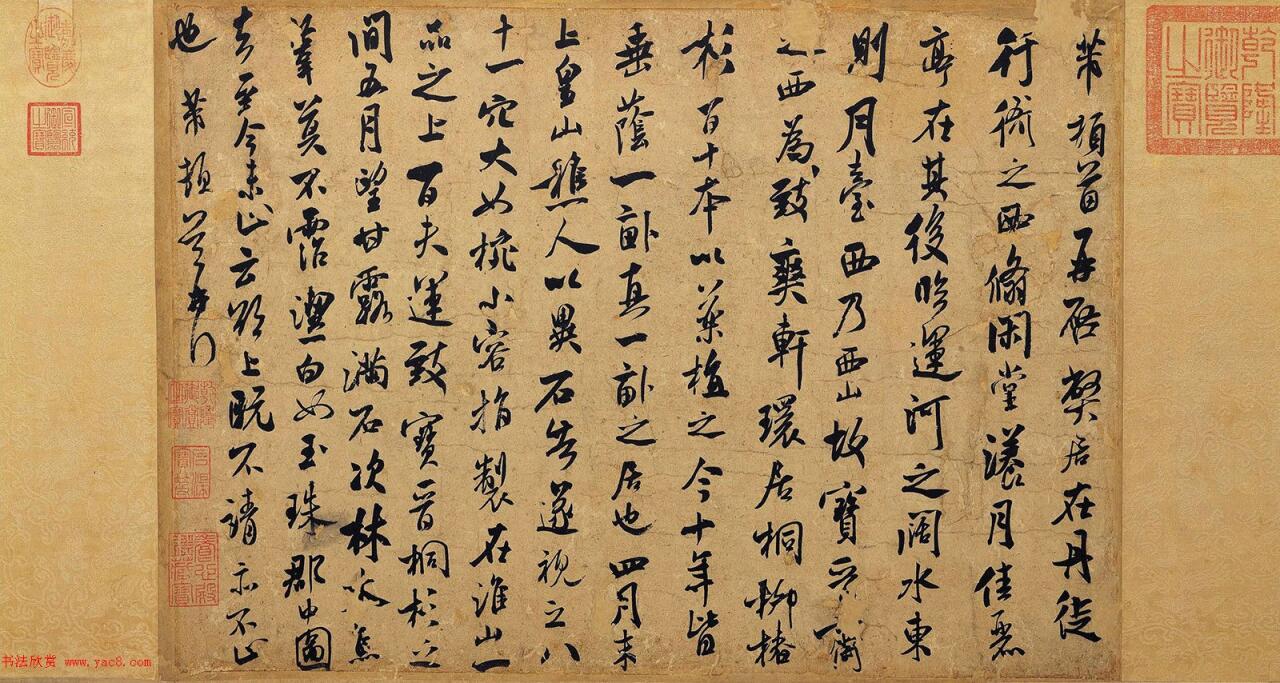 芾頓首再啓弊居在丹徒
行衙之西翛閑堂漾月佳麗
亭在其後臨運河之闊水東
則月臺西乃西山故寶晉齋
之西為致爽軒環居桐柳椿
杉百十本以藥植之今十年皆
垂蔭一畝真一畝之居也四月末
上皇山樵人以異石告遂視之八
十一穴大如椀小容指製在淮山一
品之上百夫運致寶晉桐杉之
間五月望甘露滿石次林木焦
葦莫不霑潔白如玉珠郡中圖
去至今未止云欲上既不請亦不止
也 芾頓首再拜
乾隆御覽之寶
嘉慶御覽之寶
宣統御覽之寶
书法欣赏 www.yac8.com